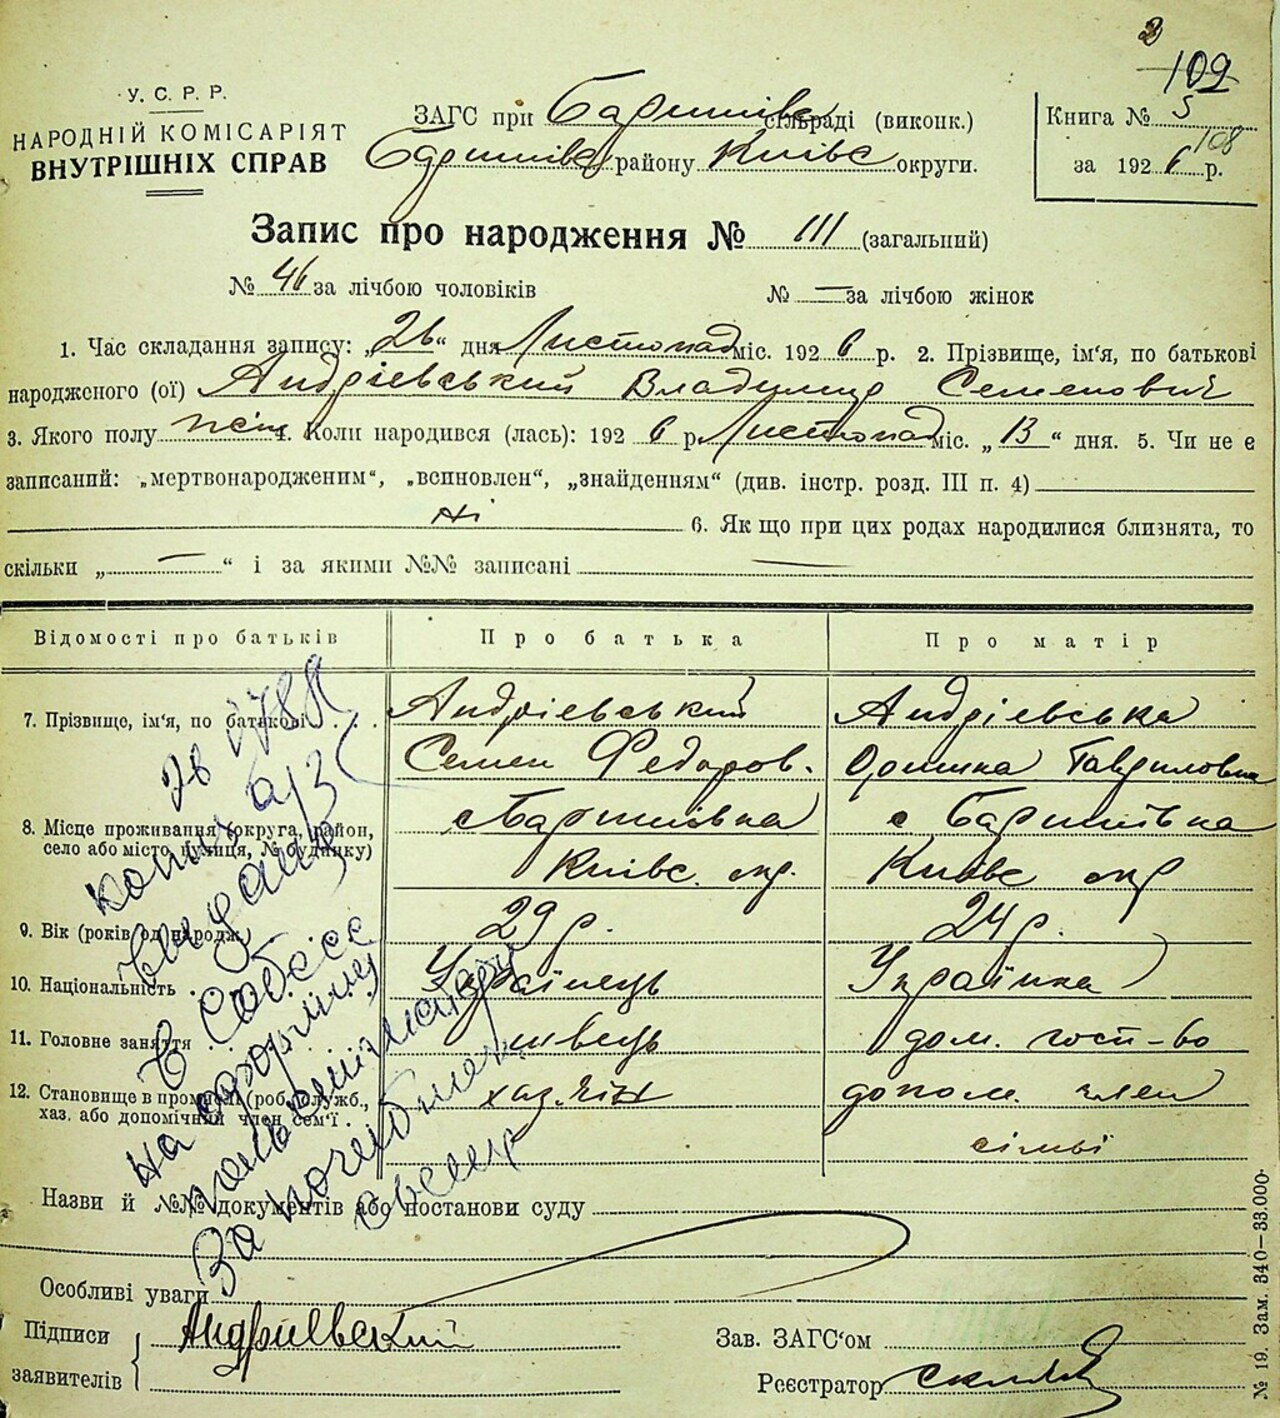 102
У. С. Р. Р.
НАРОДНІЙ КОМІСАРІЯТ
ВНУТРІШНІХ СПРАВ
ЗАГС при Баришівс сільраді (виконк.)
Баришівс району Київс округи.
Книга № 5
108
за 1926 р.
Запис про народження № 111 (загальний)
№ 46 за лічбою чоловіків № — за лічбою жінок
1. Час складання запису: „26“ дня Листопад міс. 1926 р. 2. Прізвище, ім'я, по батькові
народженого (ої) Андріевський Владимир Семенович
3. Якого полу чол 4. Коли народився (лась): 1926 р. Листопад міс. „13“ дня. 5. Чи не є
записаний: „мертвонародженим“, „всиновлен“, „знайденням“ (див. інстр. розд. III п. 4)
ні 6. Як що при цих родах народилися близнята, то
скільки „—“ і за якими №№ записані —
Відомості про батьків Про батька Про матір
7. Прізвище, ім'я, по батькові . . . Андріевський Андріевська
Семен Федоров. Оришка Гавриловна
8. Місце проживання (округа, район, с Баришівка с Баришівка
село або місто, вулиця, № будинку)
Київс. окр. Київс окр
9. Вік (років од народж.) 29 р. 24 р.
10. Національність . . . Українець Українка
11. Головне заняття . . . швець дом. госп-во
12. Становище в промислі (роб., служб., хазяїн допом. член
хаз. або допомічний член сем'ї .
сімьї
копія
видана
в Собесс
на
За
Назви й №№ документів або постанови суду
Особливі уваги
Підписи Андриевский
заявителів
Зав. ЗАГС'ом
Реєстратор
№ 19. Зам. 340—33.000.